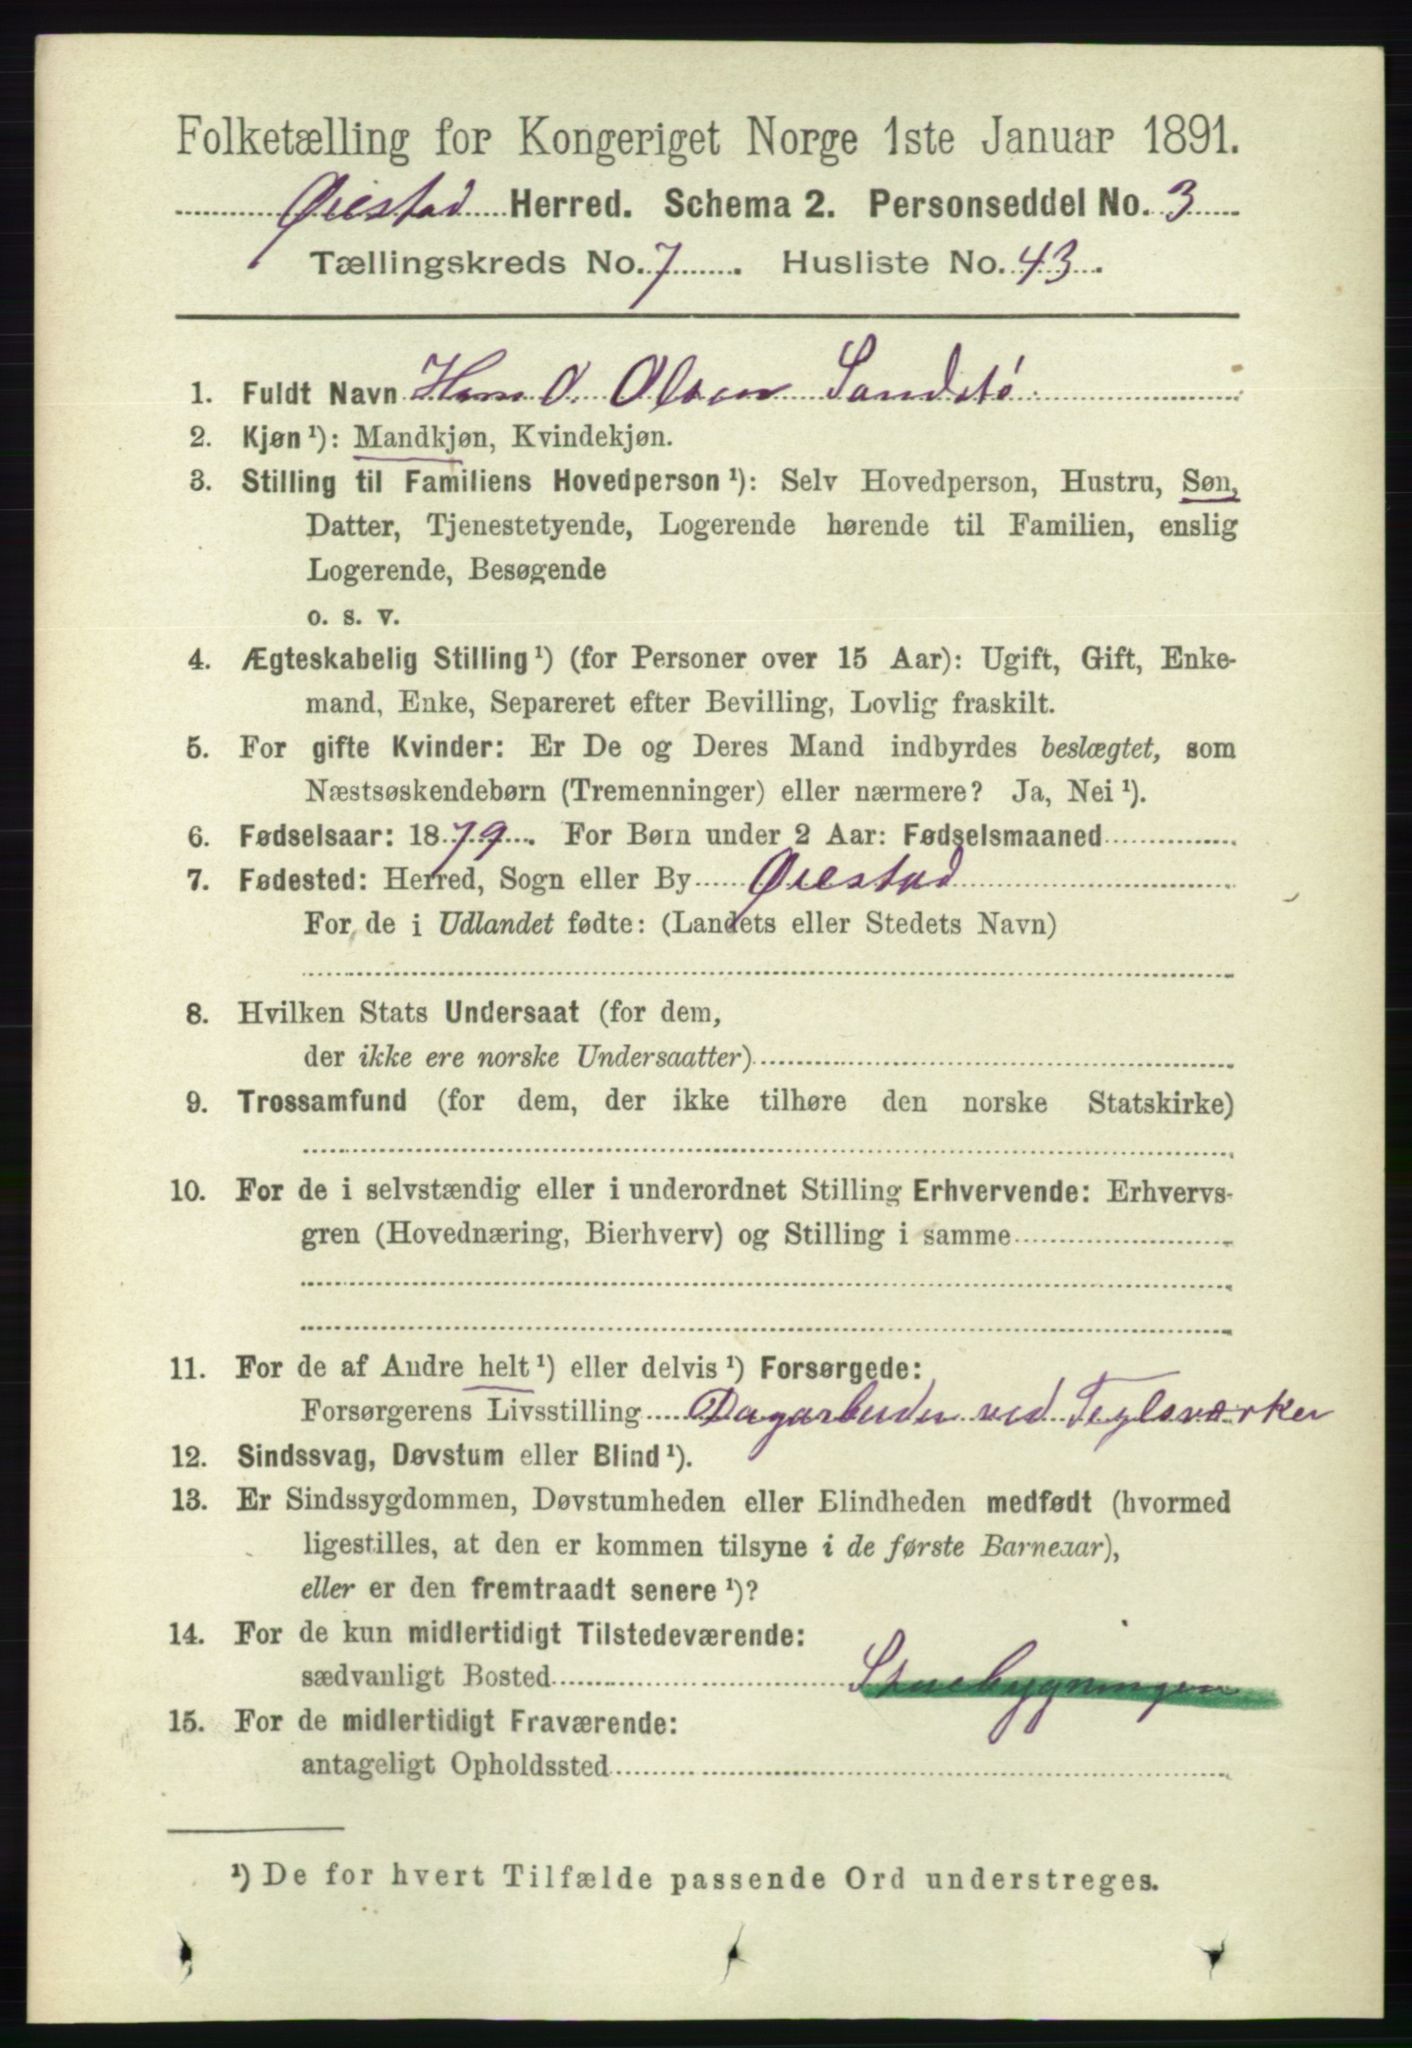 Folketælling for Kongeriget Norge 1ste Januar 1891.
Øiestad Herred. Schema 2. Personseddel No. 3
Tællingskreds No. 7. Husliste No. 43.
1. Fuldt Navn Hans O. Olsen Sandstø
2. Kjøn¹): Mandkjøn, Kvindekjøn.
3. Stilling til Familiens Hovedperson¹): Selv Hovedperson, Hustru, Søn,
Datter, Tjenestetyende, Logerende hørende til Familien, enslig
Logerende, Besøgende
o. s. v.
4. Ægteskabelig Stilling¹) (for Personer over 15 Aar): Ugift, Gift, Enke-
mand, Enke, Separeret efter Bevilling, Lovlig fraskilt.
5. For gifte Kvinder: Er De og Deres Mand indbyrdes beslægtet, som
Næstsøskendebørn (Tremenninger) eller nærmere? Ja, Nei¹).
6. Fødselsaar: 1879. For Børn under 2 Aar: Fødselsmaaned
7. Fødested: Herred, Sogn eller By Øiestad
For de i Udlandet fødte: (Landets eller Stedets Navn)
8. Hvilken Stats Undersaat (for dem,
der ikke ere norske Undersaatter)
9. Trossamfund (for dem, der ikke tilhøre den norske Statskirke)
10. For de i selvstændig eller i underordnet Stilling Erhvervende: Erhvervs-
gren (Hovednæring, Bierhverv) og Stilling i samme
11. For de af Andre helt¹) eller delvis¹) Forsørgede:
Forsørgerens Livsstilling Dagarbeider ved Teglsværker
12. Sindssvag, Døvstum eller Blind¹).
13. Er Sindssygdommen, Døvstumheden eller Blindheden medfødt (hvormed
ligestilles, at den er kommen tilsyne i de første Barneaar),
eller er den fremtraadt senere¹)?
14. For de kun midlertidigt Tilstedeværende:
sædvanligt Bosted Stuebygningen
15. For de midlertidigt Fraværende:
antageligt Opholdssted
¹) De for hvert Tilfælde passende Ord understreges.